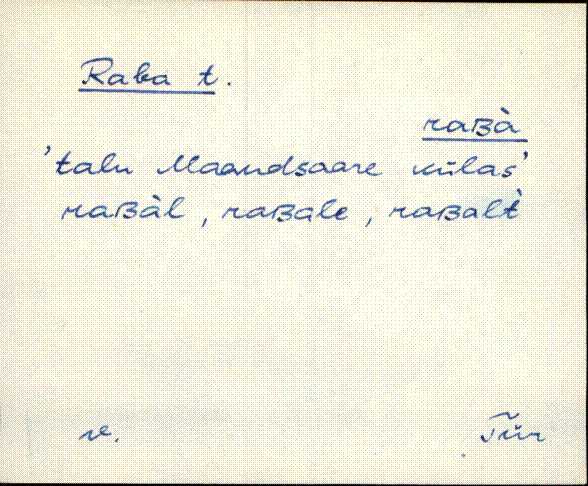 Raba t.
raʙà
'talu Maandsaare külas'
raʙàl, raʙale, raʙalt̀
v. Tür